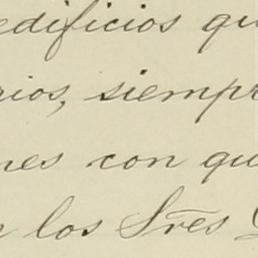 edificios qu
rios, siempr
nes con qu
los Sres